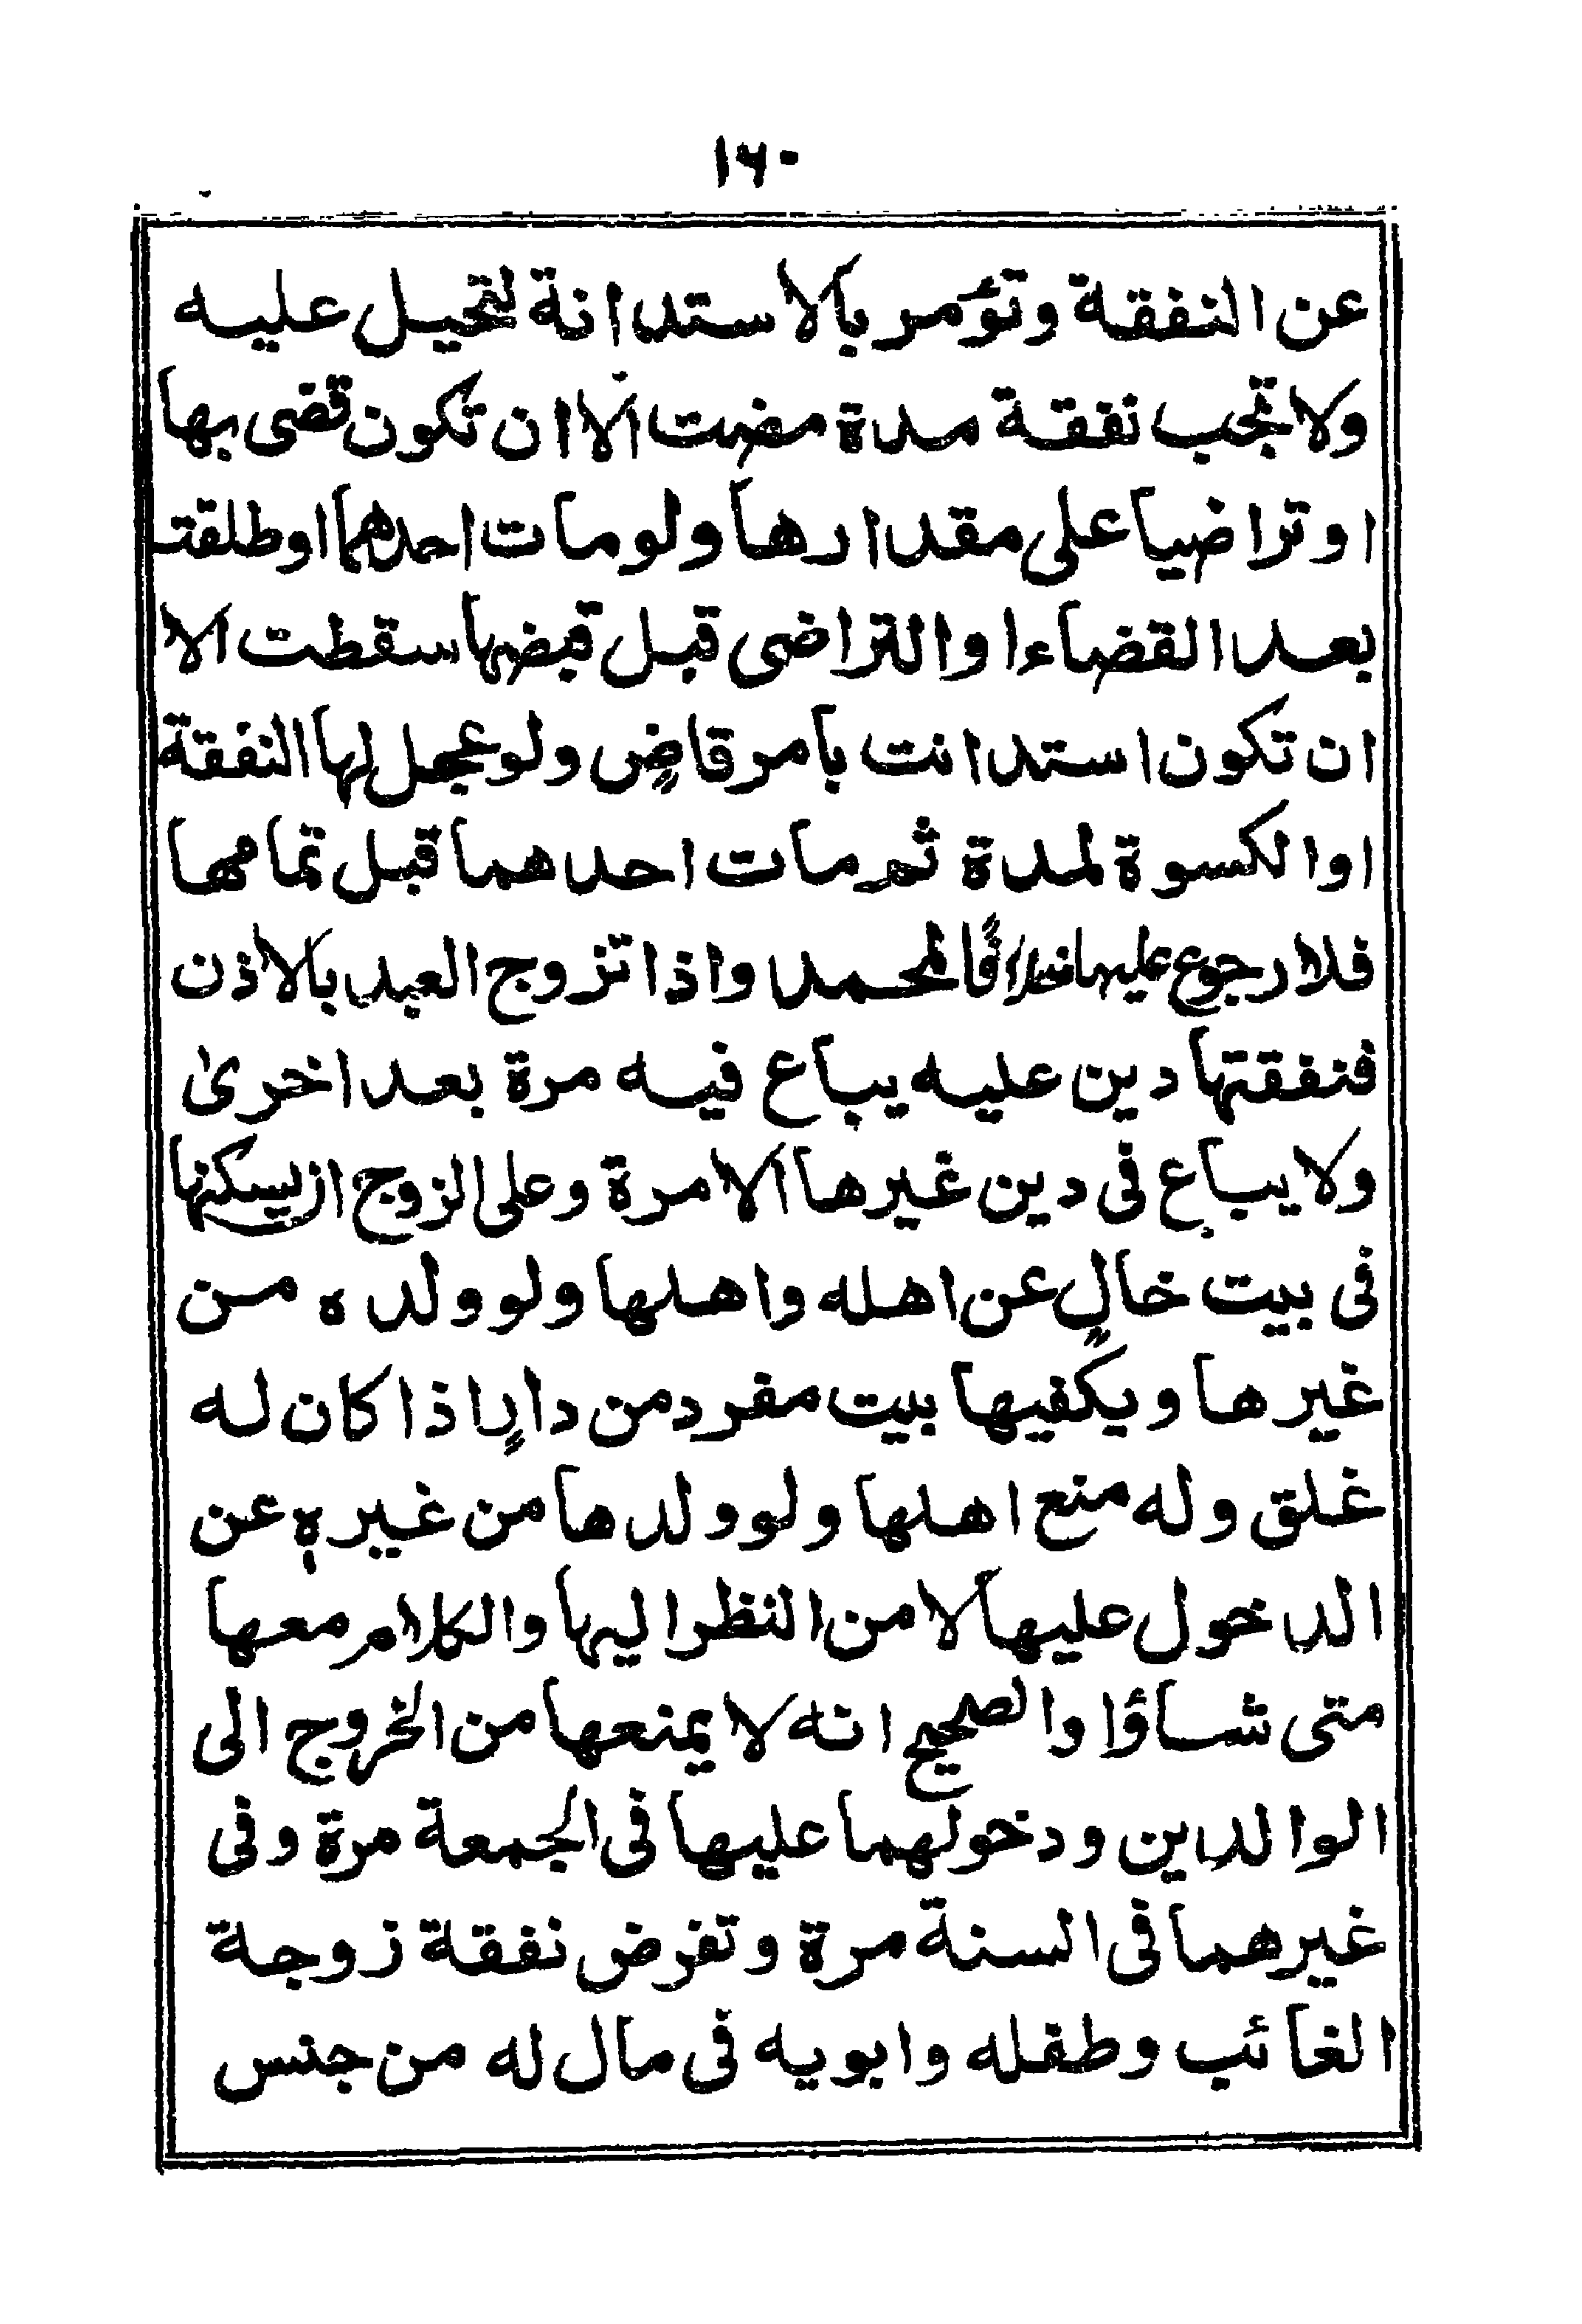 ١٦٠
عن النفقة وتؤمر بالاستدانة لتحيل عليه
ولا تجب نفقة مدة مضت الا ان تكون قضى بها
او تراضيا على مقدارها ولو مات احدهما او طلقت
بعد القضاء او التراضى قبل قبضها سقطت الا
ان تكون استدانت بامر قاضٍ ولو عجل لها النفقة
او الكسوة لمدة ثم مات احدهما قبل تمامها
فلا رجوع عليها خلافًا لمحمد واذا تزوج العبد بالاذن
فنفقتها دين عليه يباع فيه مرة بعد اخرىٰ
ولا يباع فى دين غيرها الا مرة وعلى الزوج ان يسكنها
فى بيت خالٍ عن اهله واهلها ولو ولده من
غيرها ويكفيها بيت مفرد من دارٍ اذا كان له
غلق وله منع اهلها ولو ولدها من غيرهٖ عن
الدخول عليها لا من النظر اليها والكلام معها
متى شاؤا والصحيح انه لا يمنعها من الخروج الى
الوالدين ودخولهما عليها فى الجمعة مرة وفى
غيرهما فى السنة مرة وتفرض نفقة زوجة
الغائب وطفله وابويه فى مال له من جنس